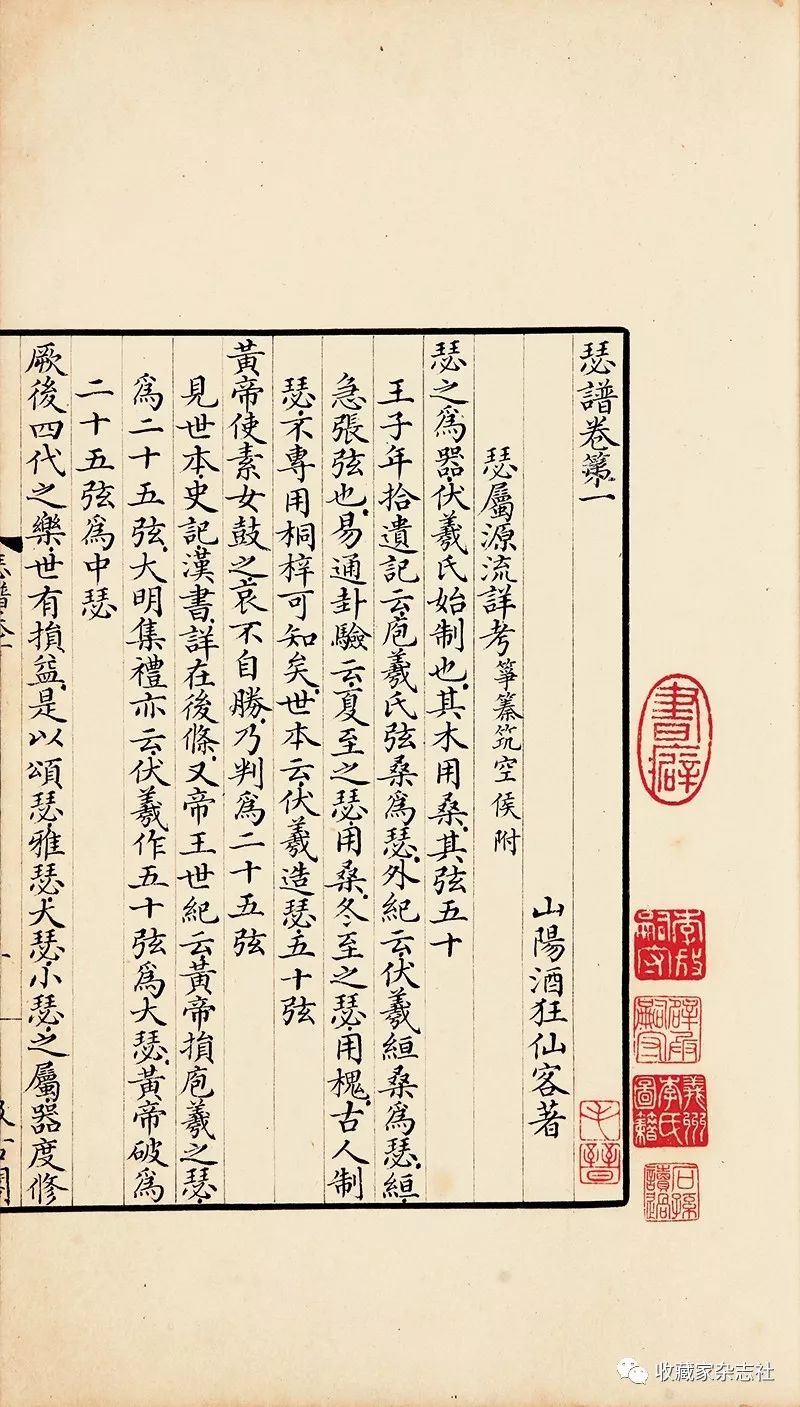 瑟譜卷第一
山陽酒狂仙客著
瑟屬源流詳考箏纂筑空侯附
瑟之爲器伏羲氏始制也其木用桑其弦五十
王子年拾遺記云庖羲氏弦桑爲瑟外紀云伏羲絙桑爲瑟絙
急張弦也易通卦驗云夏至之瑟用桑冬至之瑟用槐古人制
瑟不專用桐梓可知矣世本云伏羲造瑟五十弦
黃帝使素女鼓之哀不自勝乃判爲二十五弦
見世本史記漢書詳在後條又帝王世紀云黃帝損庖羲之瑟
爲二十五弦大明集禮亦云伏羲作五十弦爲大瑟黃帝破爲
二十五弦爲中瑟
厥後四代之樂世有損益是以頌瑟雅瑟大瑟小瑟之屬器度修
書癖
義州李氏圖籍
子晉
收藏家杂志社